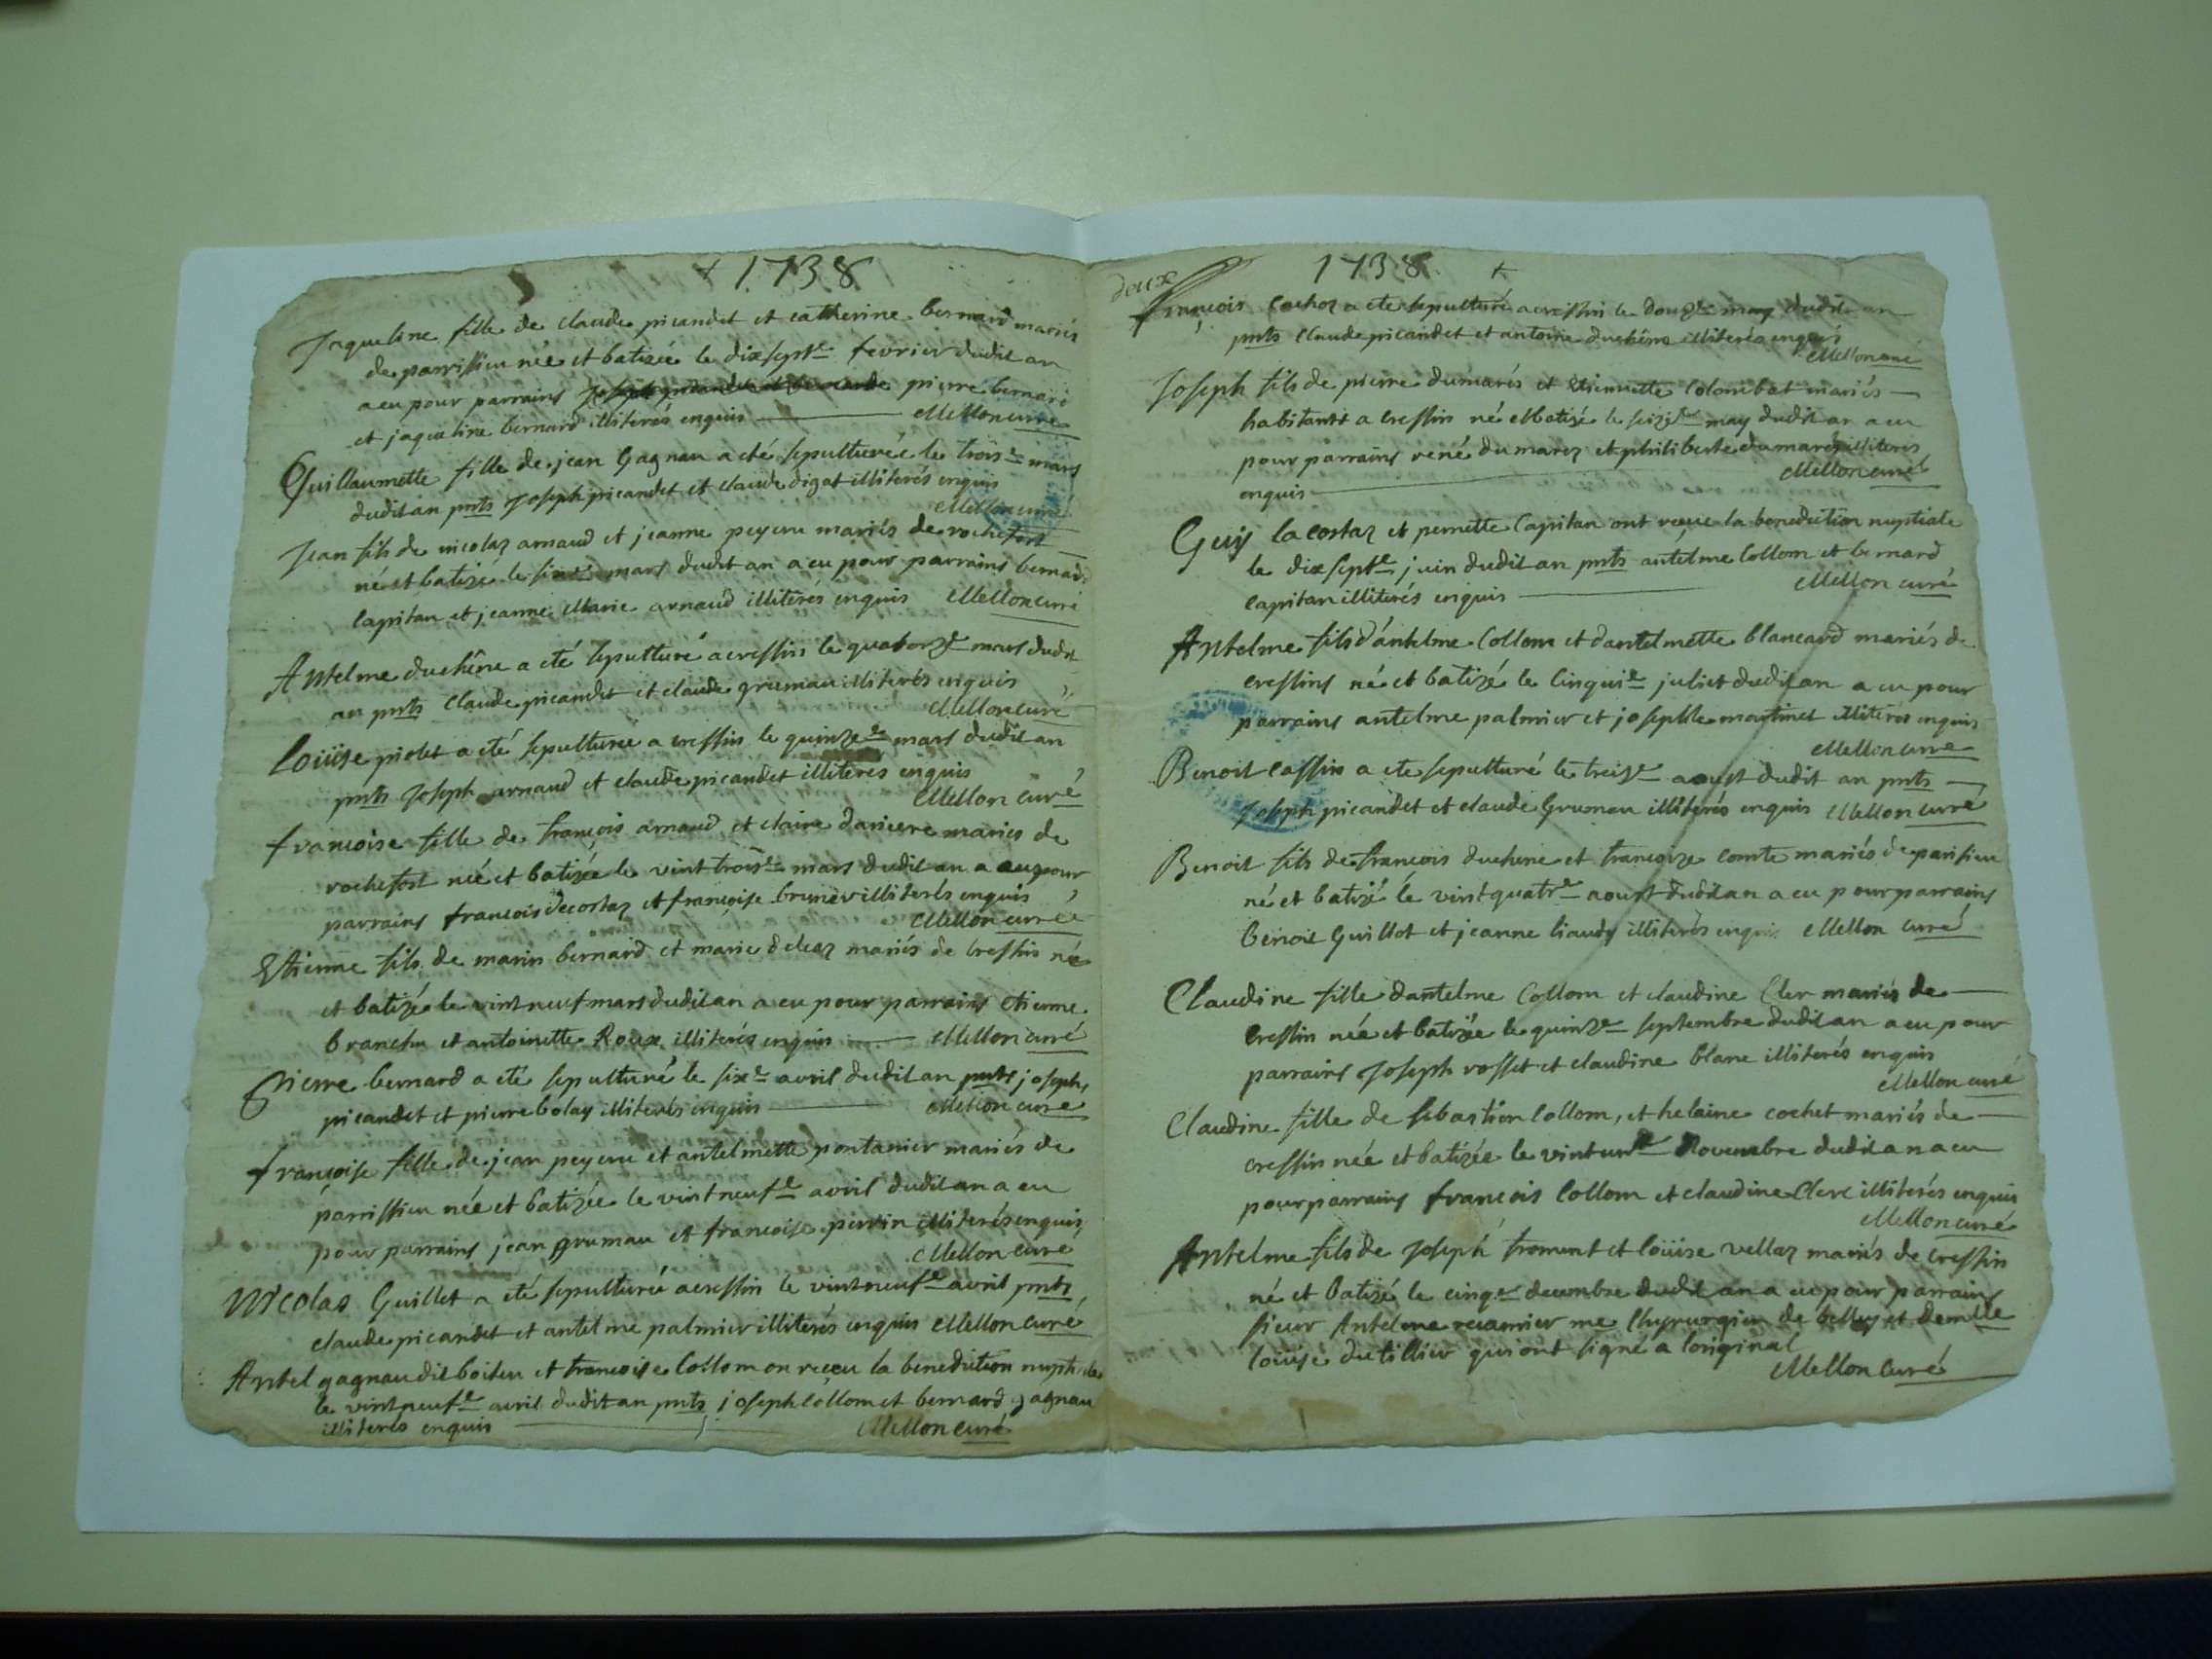 + 1738
Jaqueline fille de claude picandet et catherine bernard mariés
de parrissieu née et batizée le dixsept.e fevrier dudit an
a eu pour parrains pierre bernard
et jaqueline bernard illiterés enquis Mellon curé
Guillaumette fille de jean Gagnau a eté sepulturée le trois.e mars
dudit an pnts Joseph picandet et claude digat illiterés enquis
Mellon curé
Jean fils de nicolaz arnaud et jeanne peyeru mariés de rochefort
né et batizé le mars dudit an a eu pour parrains bernard
Capitan et jeanne Marie arnaud illiterés enquis Mellon curé
Antelme duchêne a eté sepulturé a cressin le quatorz.e mars dudit
an pnts Claude picandet et claude gruman illiterés enquis
Mellon curé
Loüise piolet a eté sepulturée a cressin le quinze.e mars dudit an
pnts Joseph arnaud et claude picandet illiterés enquis
Mellon curé
françoise fille de françois arnaud et claire dariere mariés de
rochefort née et batizée le vint trois.e mars dudit an a eu pour
parrains francois decostaz et françoise brunev illiterés enquis
Mellon curé
Etienne fils de marin bernard et marie deleaz mariés de Cressin né
et batizé le vint neuf mars dudit an a eu pour parrains etienne
branchu et antoinette Roux illiterés enquis Mellon curé
Pierre bernard a eté sepulturé le six.e avril dudit an pnts joseph
picandet et pierre bolay illiterés enquis Mellon curé
françoise fille de jean peyeru et antelmette pontanier mariés de
parrissieu née et batizée le vint neuf.e avril dudit an a eu
pour parrains jean gruman et françoise perrin illiterés enquis
Mellon curé
Nicolas Guillet a eté sepulturé a cressin le vint neuf.e avril pnts
claude picandet et antelme palmier illiterés enquis Mellon curé
Antel gagnau dit boiteu et francoise Collom on reçeu la benediction nuptiale
le vint neuf.e avril dudit an pnts joseph collom et bernard gagnau
illiterés enquis Mellon curé
deux
1738 +
François Cochoz a eté sepulturé a cressin le douz.e may dudit an
pnts Claude picandet et antoine duchêne illiterés enquis
Mellon curé
Joseph fils de pierre dumarés et Etiennette Colombat mariés
habitants a Cressin né et batizé le seizi.e may dudit an a eu
pour parrains rené dumarez et philiberte dumarez illiterés
enquis Mellon curé
Guy lacostaz et pernette Capitan ont reçeu la benediction nuptiale
le dix sept.e juin dudit an pnts antelme Collom et bernard
Capitan illiterés enquis Mellon curé
Antelme fils d'antelme Collom et dantelmette blancard mariés de
Cressins né et batizé le Cinqui.e juliet dudit an a eu pour
parrains antelme palmier et josephte martinet illiterés enquis
Mellon curé
Benoit Cassin a eté sepulturé le treiz.e aoust dudit an pnts
Joseph picandet et claude Gruman illiterés enquis Mellon curé
Benoit fils de françois duchene et françoize comte mariés de parisieu
né et batizé le vintquatr.e aoust dudit an a eu pour parrains
benoit Guillot et jeanne liaudy illiterés enquis Mellon curé
Claudine fille dantelme Collom et claudine Cler mariés de
Cressin née et batizée le quinz.e septembre dudit an a eu pour
parrains Joseph rosset et claudine blanc illiterés enquis
Mellon curé
Claudine fille de sebastien Collom, et helaine cochet mariés de
cressin née et batizée le vintun.e Novembre dudit an a eu
pour parrains françois Collom et claudine Clerc illiterés enquis
Mellon curé
Antelme fils de Joseph froment et loüise vellaz mariés de Cressin
né et batizé le cinq.e decembre dudit an a eu pour parrains
sieur Antelme recamier me Chyrurgien de belley et demlle
loüise dutillier qui ont signé a loriginal
Mellon Curé